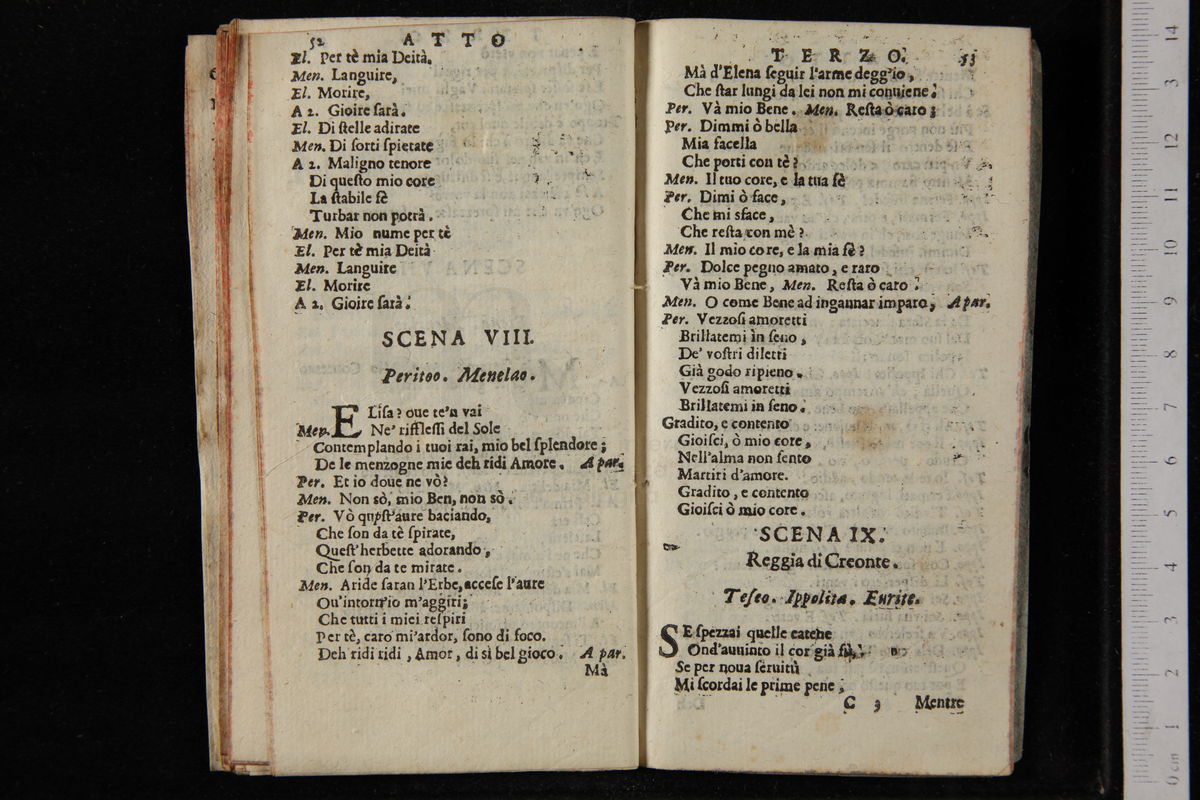 52 ATTO
El. Per tè mia Deità.
Men. Languire,
El. Morire,
A 2. Gioire sarà.
El. Di stelle adirate
Men. Di sorti spietate
A 2. Maligno tenore
Di questo mio core
La stabile fè
Turbar non potrà.
Men. Mio nume per tè
El. Per tè mia Deità
Men. Languire
El. Morire
A 2. Gioire sarà.
SCENA VIII.
Peritoo. Menelao.
ELisa? oue te'n vai
Men. Ne' rifflessi del Sole
Contemplando i tuoi rai, mio bel splendore;
De le menzogne mie deh ridi Amore. A par.
Per. Et io doue ne vò?
Men. Non sò, mio Ben, non sò.
Per. Vò qupst'aure baciando,
Che son da tè spirate,
Quest'herbette adorando,
Che son da te mirate.
Men. Aride saran l'Erbe, accese l'aure
Ou'intorn'io m'aggiri;
Che tutti i miei respiri
Per tè, caro mi'ardor, sono di foco.
Deh ridi ridi, Amor, di sì bel gioco. A par.
Mà
TERZO. 53
Mà d'Elena seguir l'arme degg'io,
Che star lungi da lei non mi conuiene.
Per. Và mio Bene. Men. Resta ò caro;
Per. Dimmi ò bella
Mia facella
Che porti con tè?
Men. Il tuo core, e la tua fè
Per. Dimi ò face,
Che mi sface,
Che resta con mè?
Men. Il mio core, e la mia fè?
Per. Dolce pegno amato, e raro
Và mio Bene, Men. Resta ò caro.
Men. O come Bene ad ingannar imparo, A par.
Per. Vezzosi amoretti
Brillatemi in seno,
De' vostri diletti
Già godo ripieno.
Vezzosi amoretti
Brillatemi in seno.
Gradito, e contento
Gioisci, ò mio core,
Nell'alma non sento
Martiri d'amore.
Gradito, e contento
Gioisci ò mio core.
SCENA IX.
Reggia di Creonte.
Teseo. Ippolita. Eurite.
SE spezzai quelle catehe
Ond'auuinto il cor già fù,
Se per noua seruitù
Mi scordai le prime pene;
C 3 Mentre
0 cm 1 2 3 4 5 6 7 8 9 10 11 12 13 14